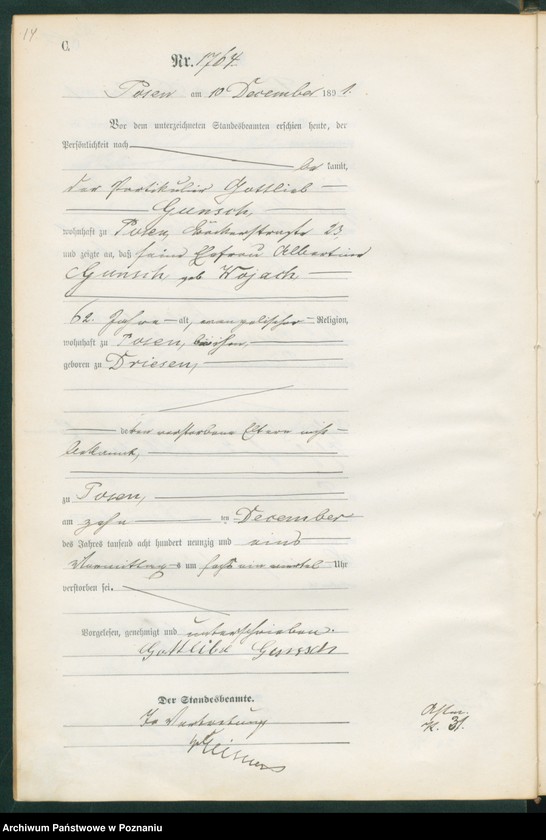 14
C.
Nr. 1764.
Posen am 10 December 1891.
Vor dem unterzeichneten Standesbeamten erschien heute, der
Persönlichkeit nach
be kannt,
der Partikulier Gottlieb
Gunsch,
wohnhaft zu Posen, 23
und zeigte an, daß seine Ehefrau Albertine
Gunsch geb Wojach
62 Jahre alt, evangelischer Religion,
wohnhaft zu Posen, bei ihm,
geboren zu Driesen,
deren verstorbene Eltern nicht
bekannt,
zu Posen,
am zehn ten December
des Jahres tausend acht hundert neunzig und eins
Vormittags um sechs ein viertel Uhr
verstorben sei.
Vorgelesen, genehmigt und unterschrieben.
Gottlieb Gunsch
Der Standesbeamte.
In Vertretung
K. 31.
Archiwum Państwowe w Poznaniu